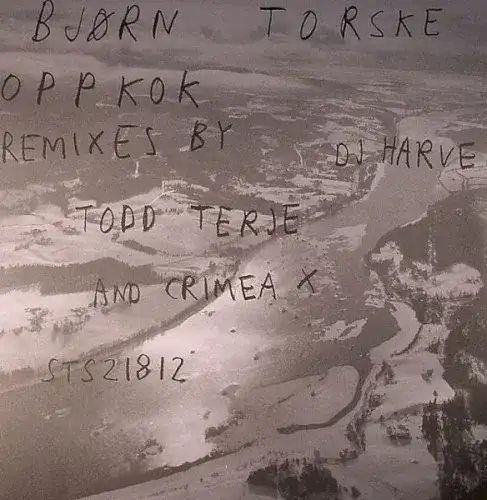 BJØRN TORSKE
OPPKOK
REMIXES BY
DJ HARVE
TODD TERJE
AND CRIMEA X
STS21812